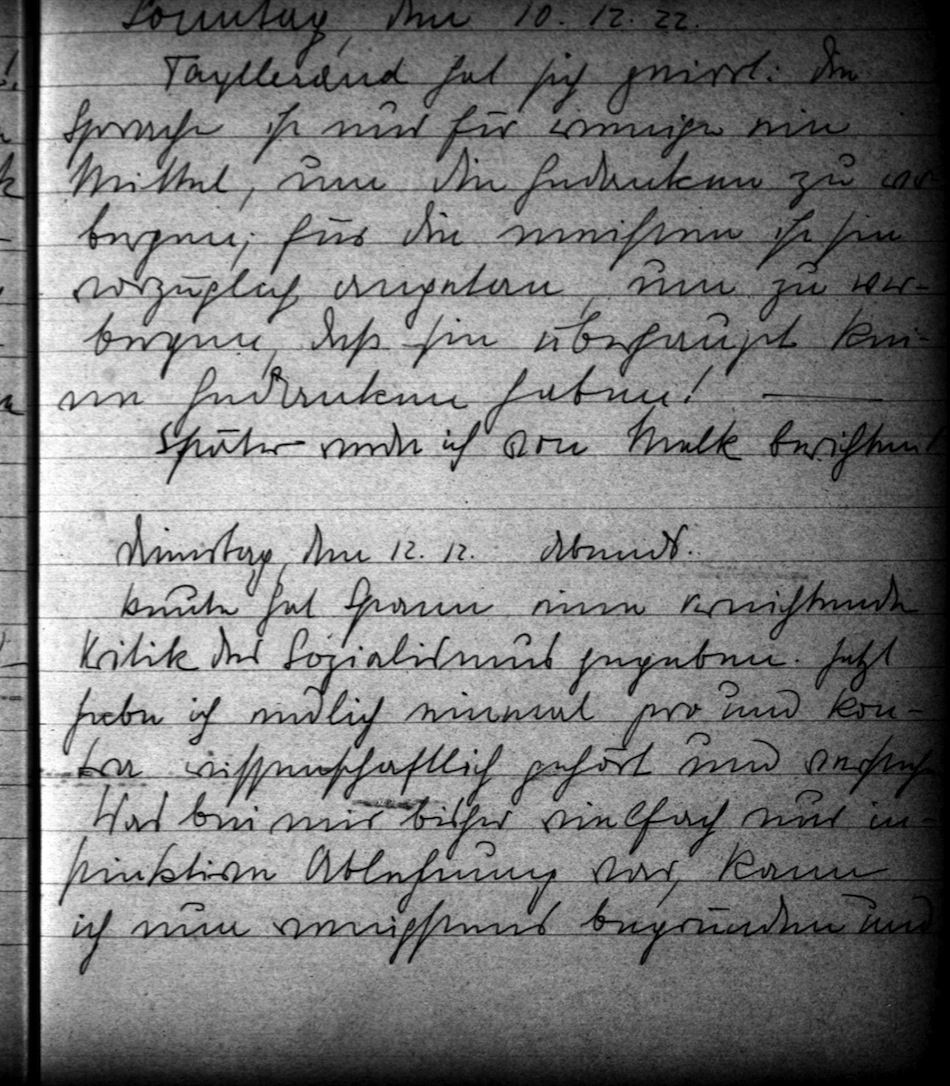 Sonntag, den 10. 12. 22.
Tayllerand hat sich geirrt: die
Sprache ist nur für wenige ein
Mittel, um die Gedanken zu ver-
bergen; für die meisten ist sie
vorzüglich angetan, um zu ver-
bergen, daß sie überhaupt kei-
ne Gedanken haben! —
Später werde ich von Melk berichten!
Dienstag, den 12. 12. abends.
Heute hat Spann eine vernichtende
Kritik des Sozialismus gegeben. Jetzt
habe ich endlich einmal pro und kon-
tra wissenschaftlich gehört und verstehe
Was bei mir bisher vielfach nur in-
stinktive Ablehnung war, kann
ich nun wenigstens begründen und